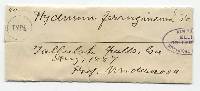 Hydnum ferrugineum
TYPE
Tallulah Falls, Ga
Aug, 1887
Prof. Underwood